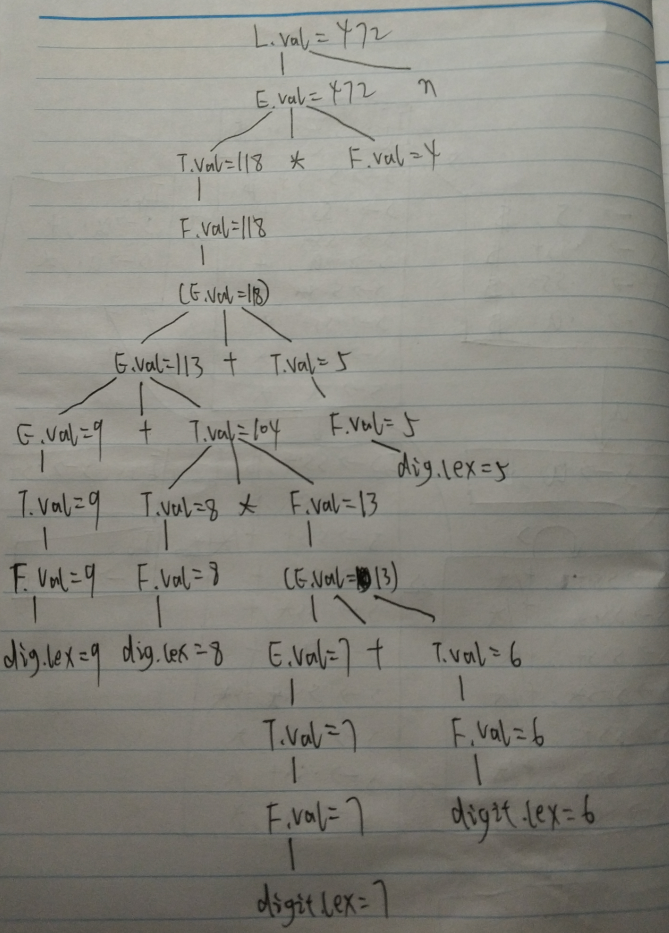 L.val=472
E.val=472 n
T.val=118 * F.val=4
F.val=118
(E.val=118)
E.val=113 + T.val=5
E.val=9 + T.val=104 F.val=5
dig.lex=5
T.val=9 T.val=8 * F.val=13
F.val=9 F.val=8 (E.val=13)
dig.lex=9 dig.lex=8 E.val=7 + T.val=6
T.val=7 F.val=6
F.val=7 digit.lex=6
digit.lex=7